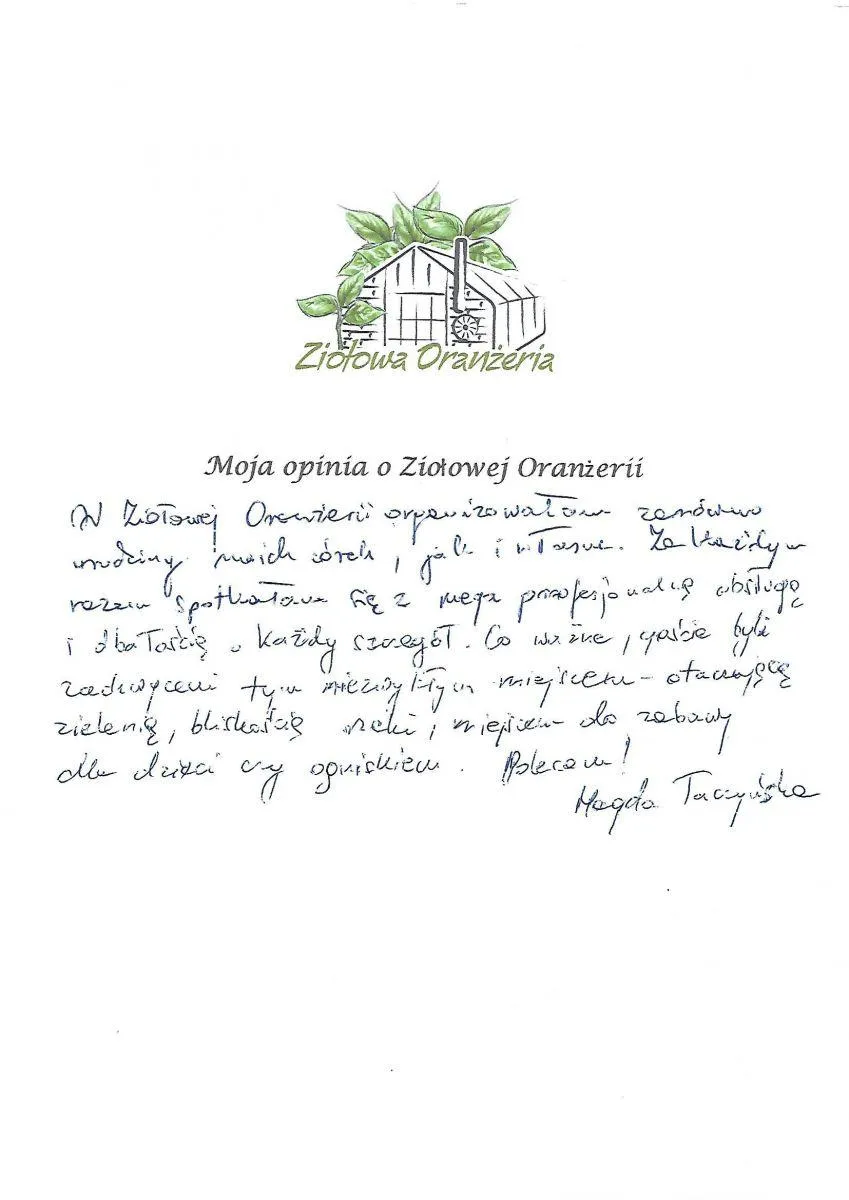 Ziołowa Oranżeria
Moja opinia o Ziołowej Oranżerii
W Ziołowej Oranżerii organizowałam zarówno
urodziny moich córek, jak i własne. Za każdym
razem spotkałam się z mega profesjonalną obsługą
i dbałością o każdy szczegół. Co ważne, goście byli
zachwyceni tym niezwykłym miejscem - otaczającą
zielenią, bliskością rzeki, miejscem do zabawy
dla dzieci czy ogniskiem. Polecam!
Magda Taczyńska